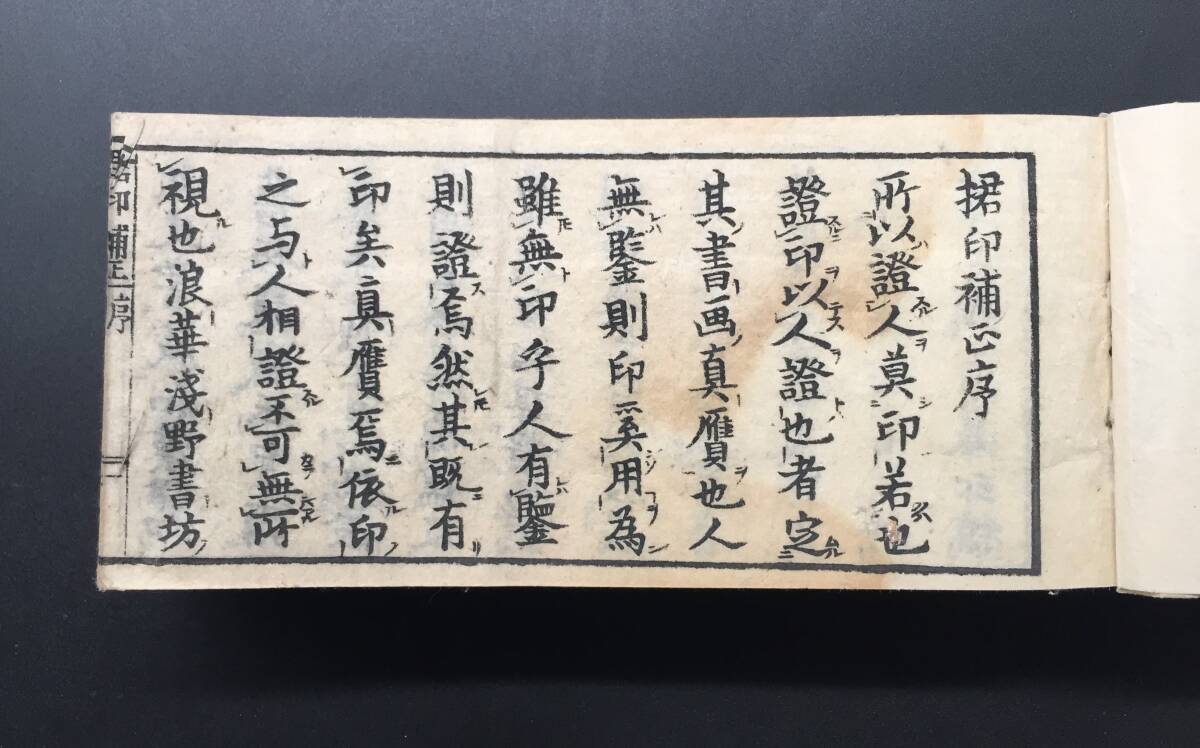 捃印補正序
所以證人莫印若也
證印以人證也者定
其書画真贋也人
無鑒則印奚用為
雖無印乎人有鑒
則證焉然其既有
印矣真贋焉依印
之与人相證不可無所
視也浪華浅野書坊
印補正序